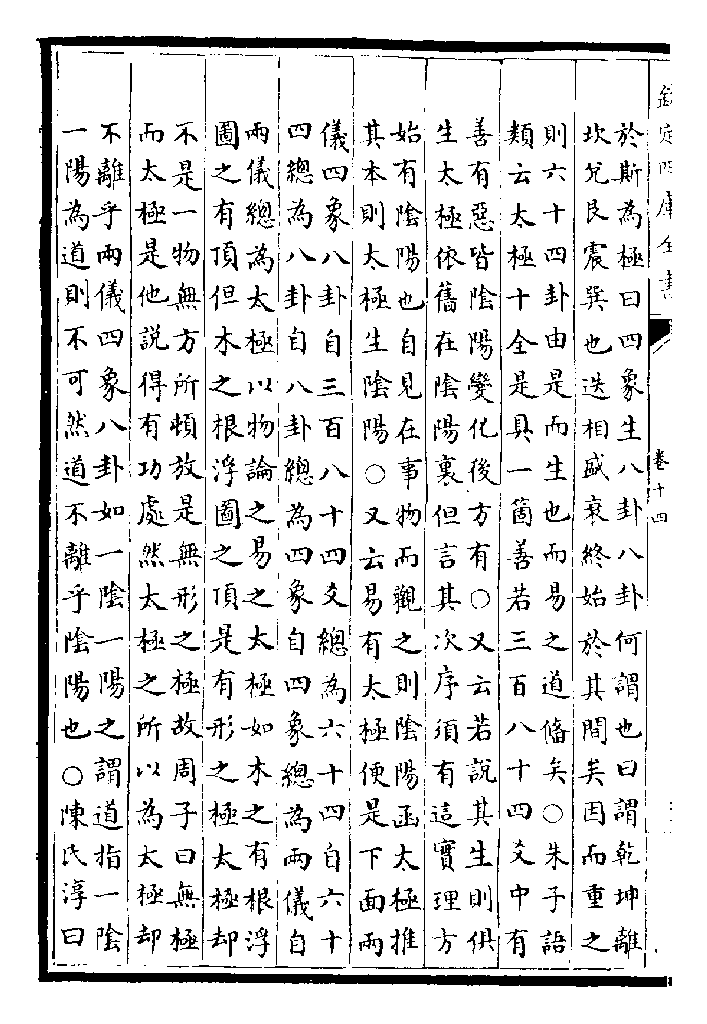 欽定四庫全書
卷十四
於斯為極曰四象生八卦八卦何謂也曰謂乾坤離
坎兌艮震巽也迭相盛衰終始於其間矣因而重之
則六十四卦由是而生也而易之道備矣○朱子語
類云太極十全是具一箇善若三百八十四爻中有
善有惡皆陰陽變化後方有○又云若說其生則俱
生太極依舊在陰陽裏但言其次序須有這實理方
始有陰陽也自見在事物而觀之則陰陽函太極推
其本則太極生陰陽○又云易有太極便是下面兩
儀四象八卦自三百八十四爻總為六十四自六十
四總為八卦自八卦總為四象自四象總為兩儀自
兩儀總為太極以物論之易之太極如木之有根浮
圖之有頂但木之根浮圖之頂是有形之極太極却
不是一物無方所頓放是無形之極故周子曰無極
而太極是他說得有功處然太極之所以為太極却
不離乎兩儀四象八卦如一陰一陽之謂道指一陰
一陽為道則不可然道不離乎陰陽也○陳氏淳曰